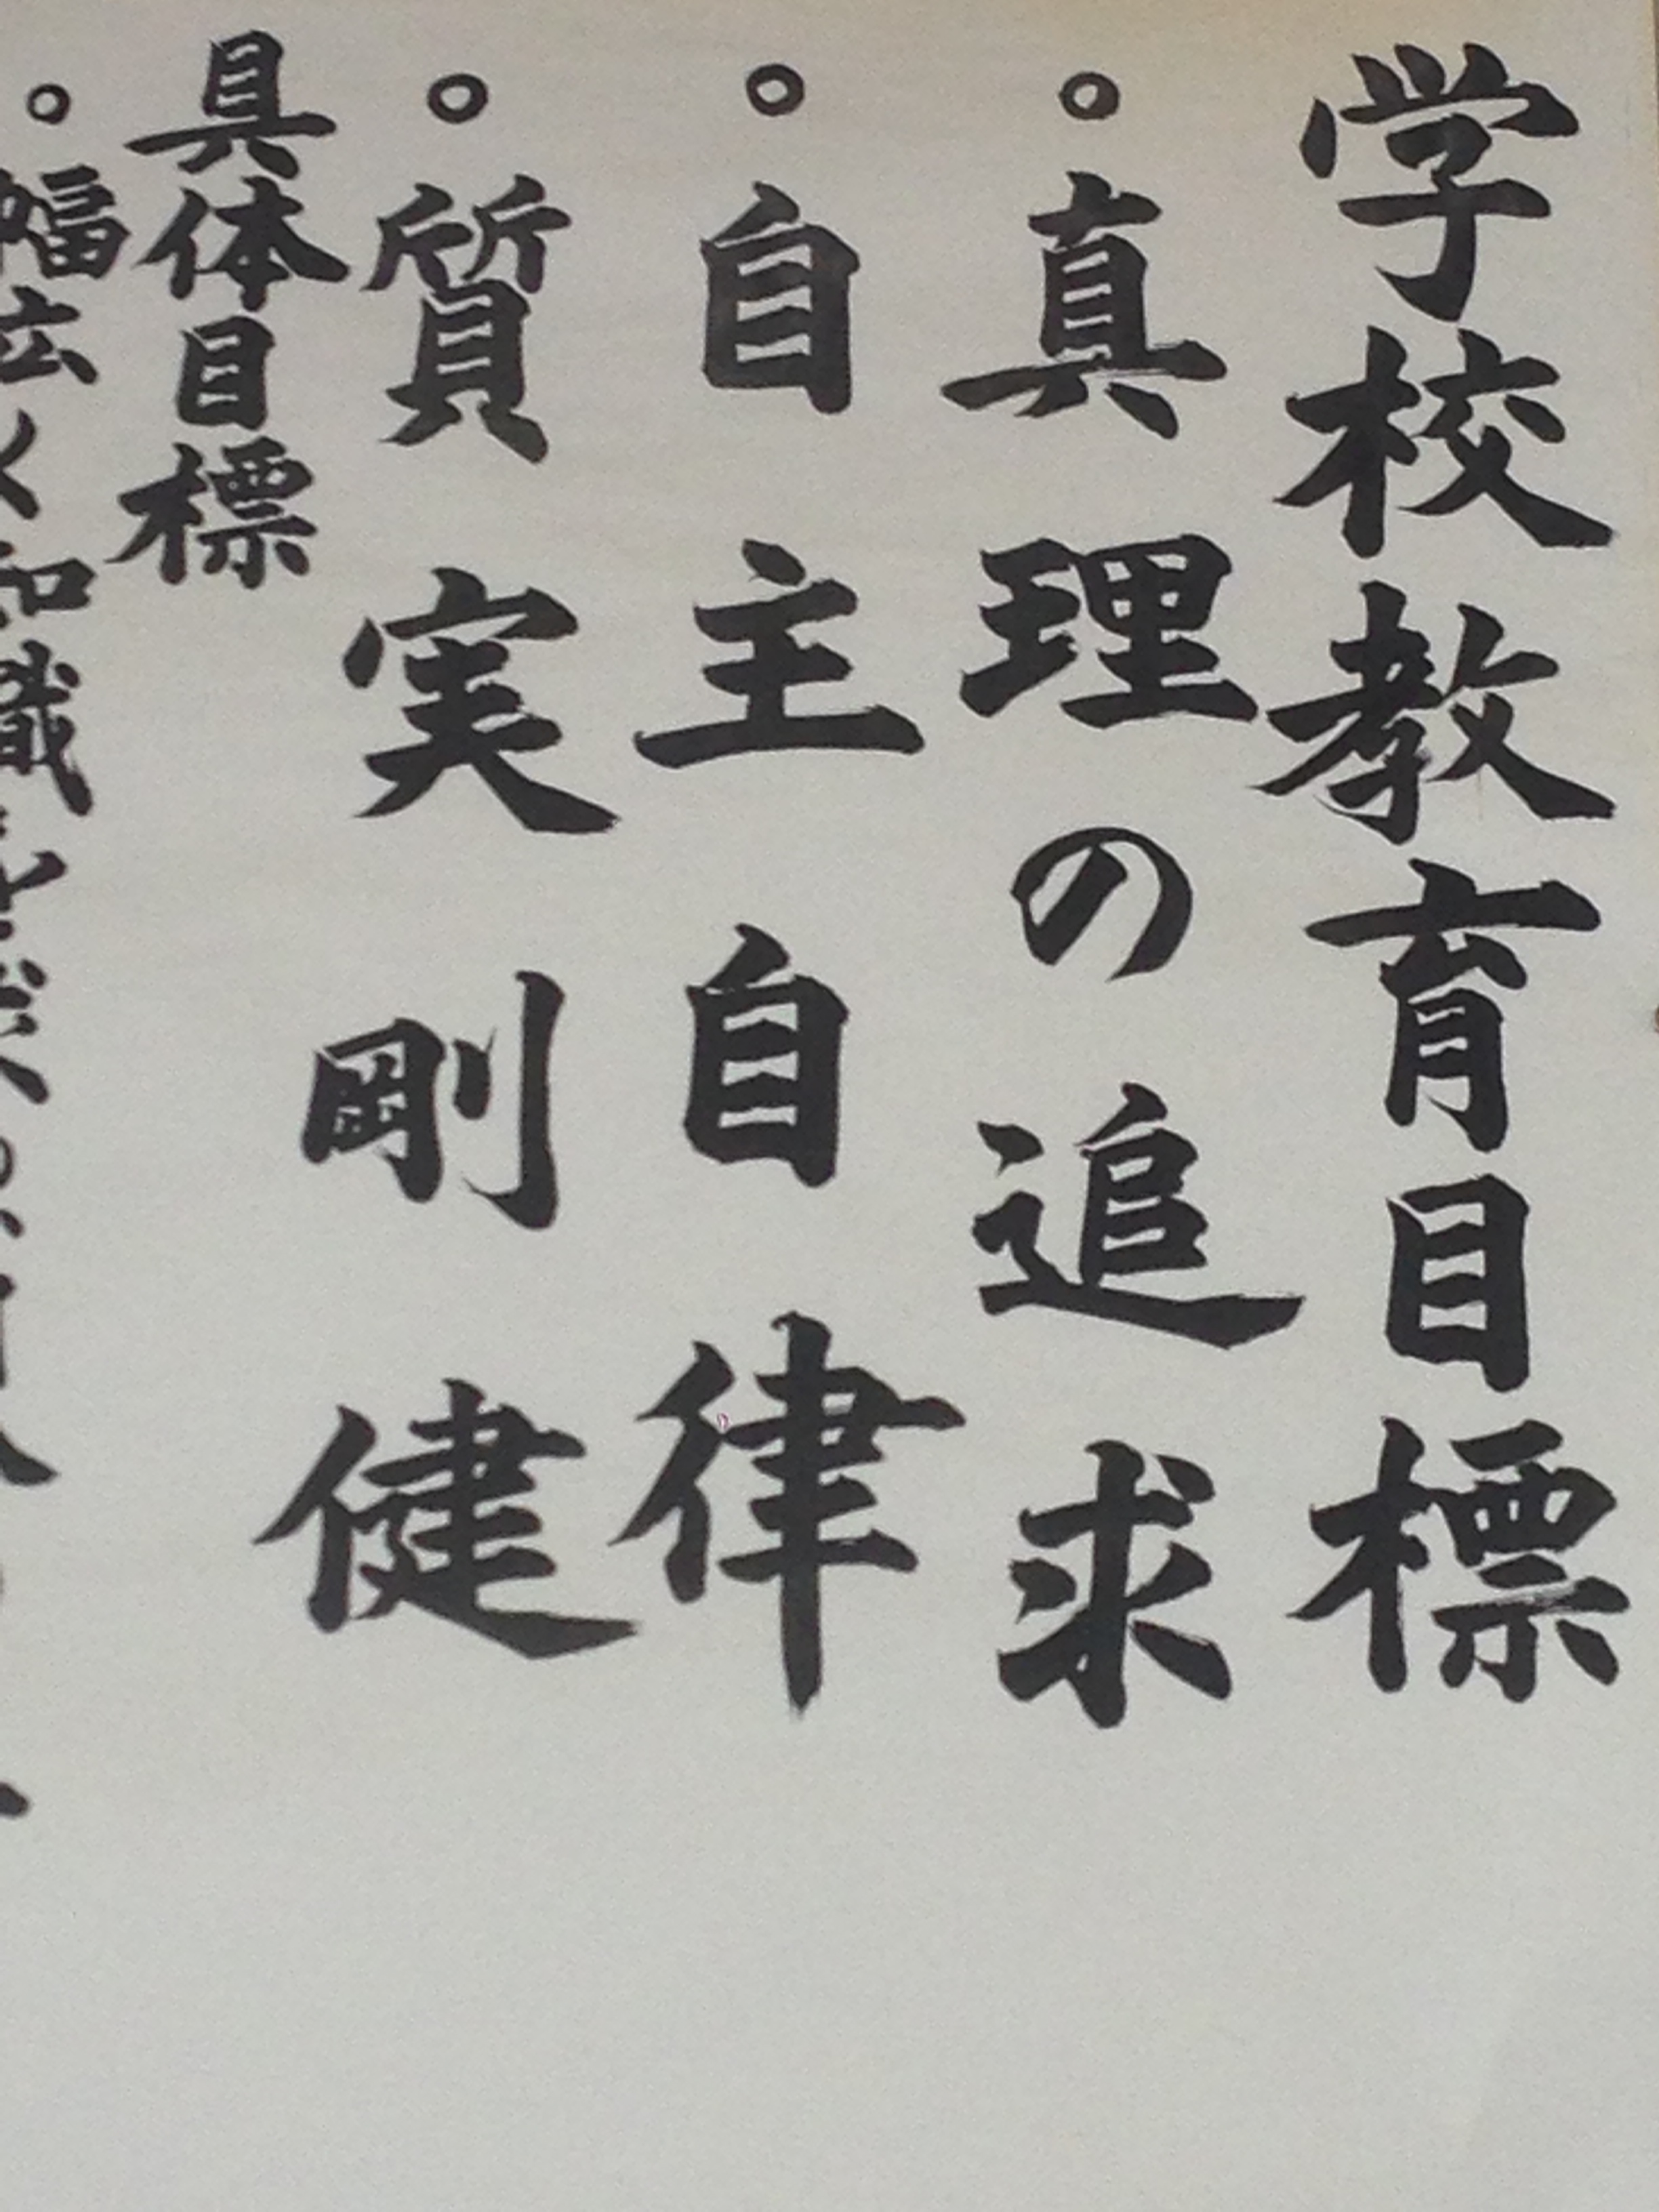 学校教育目標
。真理の追求
。自主自律
。質実剛健
具体目標
。幅広く知識を